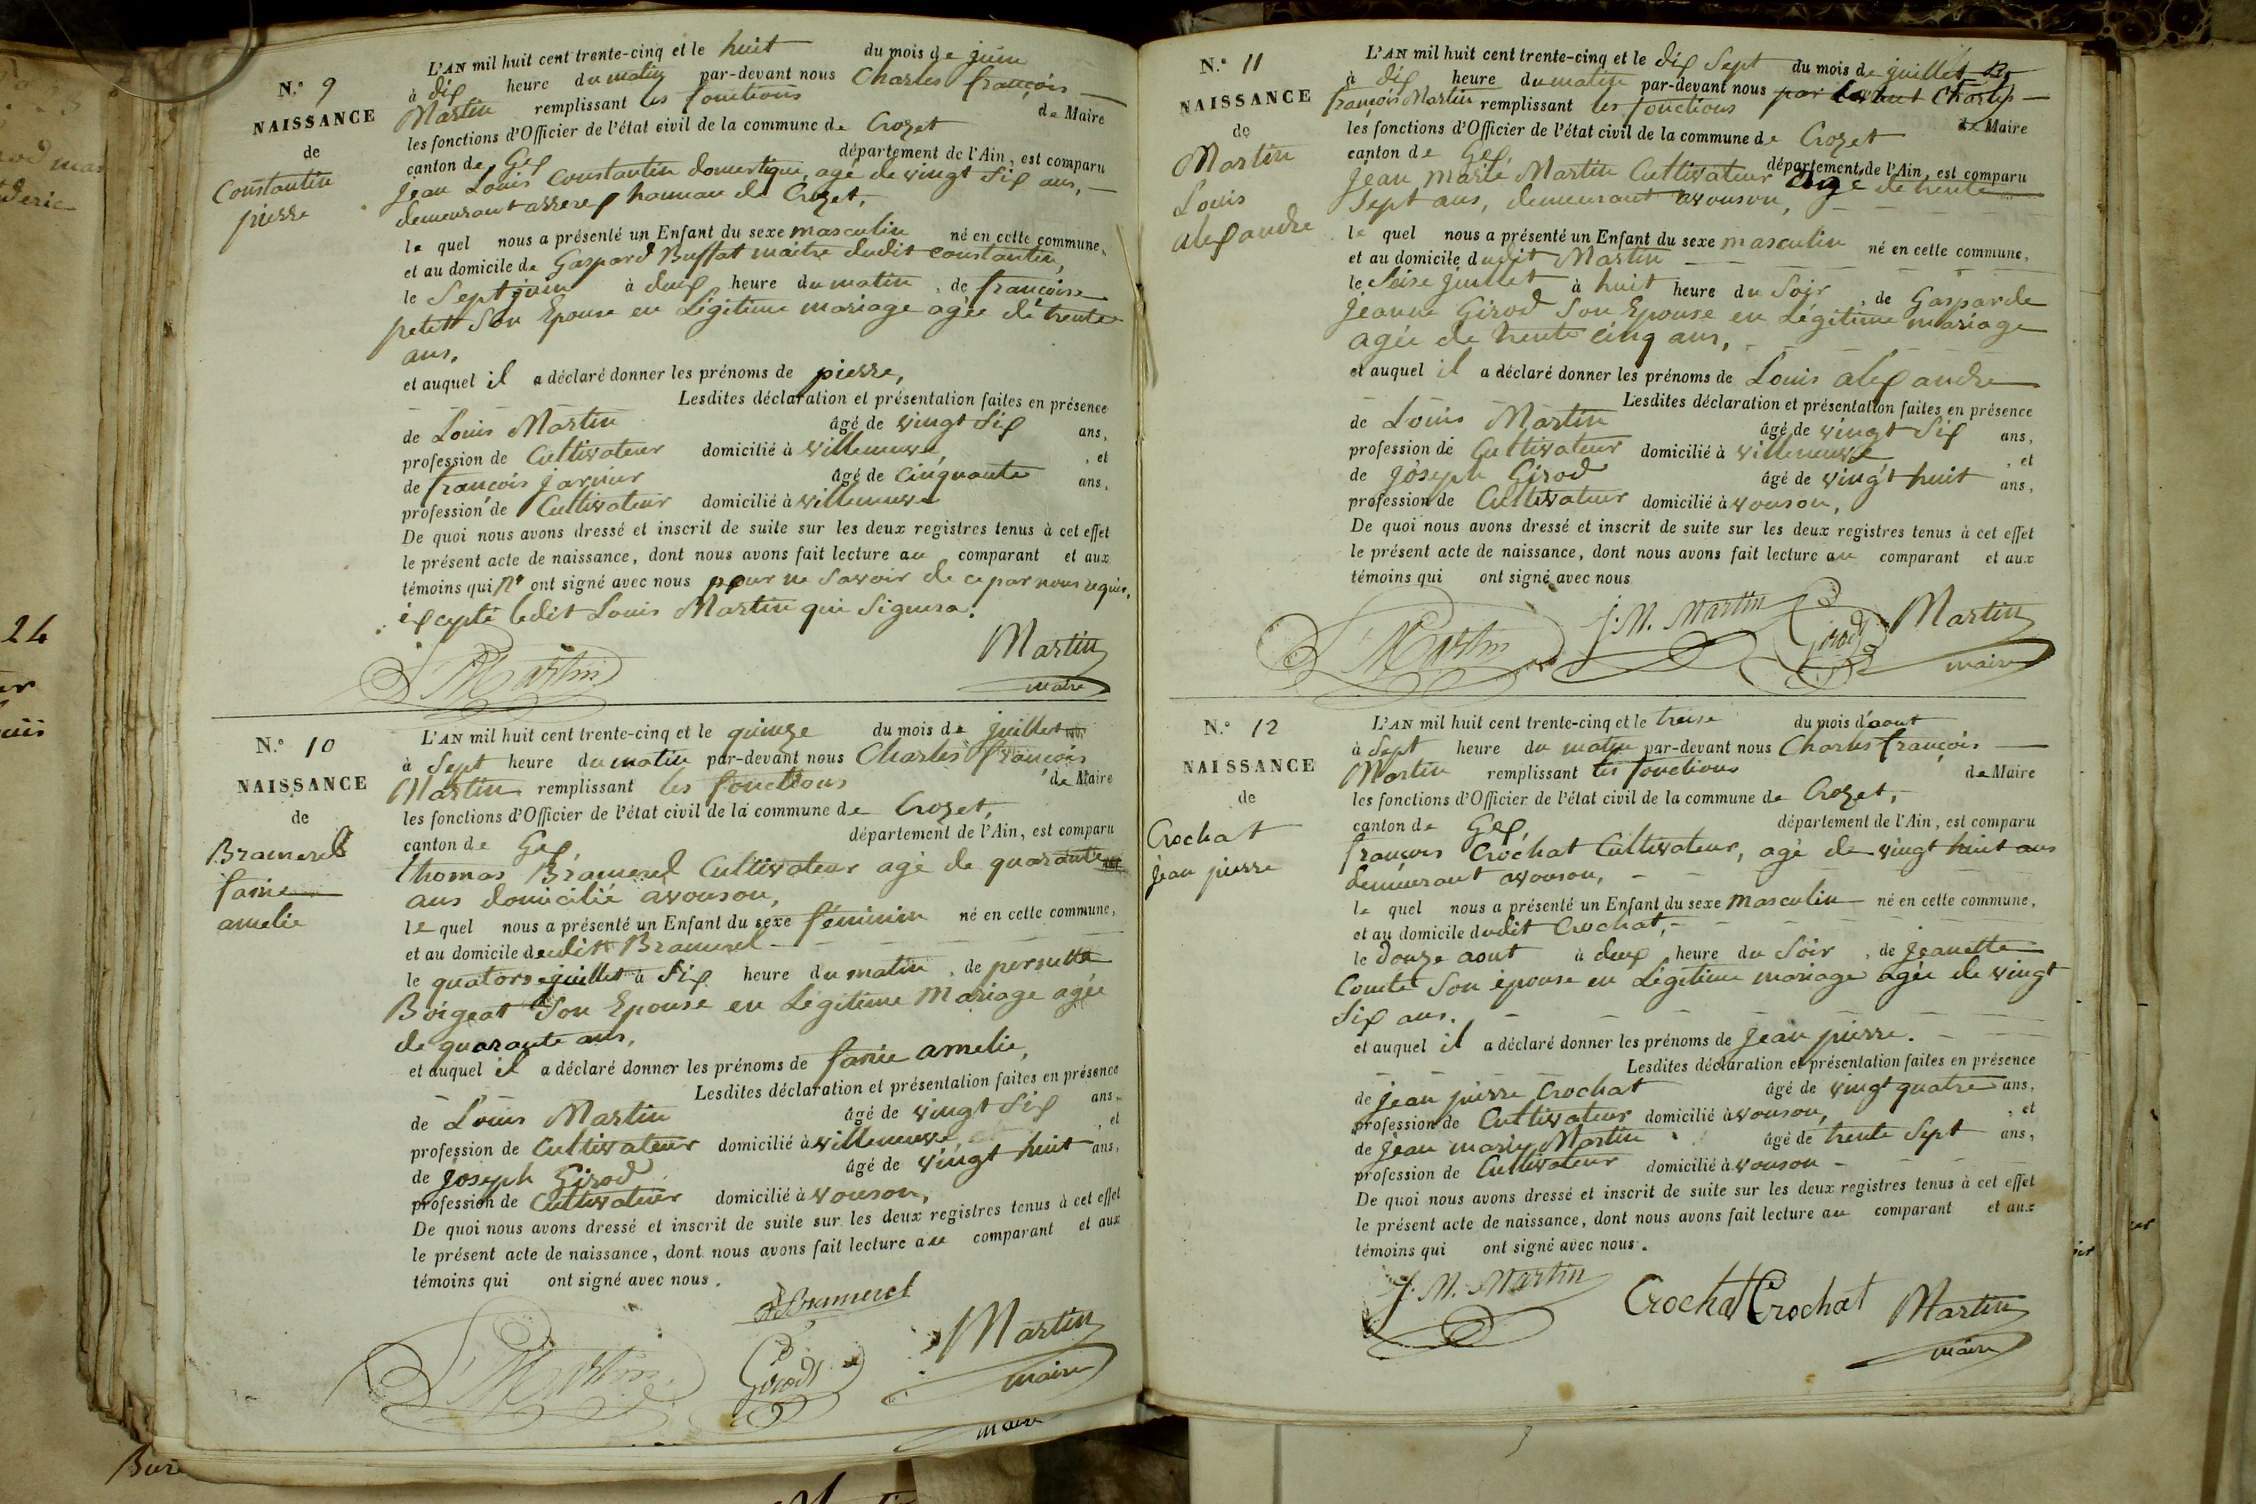 N.° 9
NAISSANCE
de
Constantin
pierre
L'AN mil huit cent trente-cinq et le huit du mois de juin
à dix heure du matin par-devant nous Charles françois
Martin remplissant les fonctions de Maire
les fonctions d'Officier de l'état civil de la commune de Crozet
canton de Gex département de l'Ain, est comparu
jean Louis Constantin domestique, agé de vingt six ans,
demeurant a hameau de Crozet,
le quel nous a présenté un Enfant du sexe masculin né en cette commune,
et au domicile de Gaspard Buffat maitre dudit constantin,
le sept juin à deux heure du matin, de françoise
petit Son Epouse en Légitime mariage agée de trente
ans.
et auquel il a déclaré donner les prénoms de pierre,
Lesdites déclaration et présentation faites en présence
de Louis Martin âgé de vingt six ans,
profession de Cultivateur domicilié à villeneuve, et
de françois jarnier âgé de cinquante ans,
profession de Cultivateur domicilié à villeneuve
De quoi nous avons dressé et inscrit de suite sur les deux registres tenus à cet effet
le présent acte de naissance, dont nous avons fait lecture au comparant et aux
témoins qui n' ont signé avec nous pour ne savoir de ce par nous requis,
excepté ledit Louis Martin qui signera.
L Martin
Martin
maire
N.° 10
NAISSANCE
de
Bramerel
fanie
amelie
L'AN mil huit cent trente-cinq et le quinze du mois de juillet
à Sept heure du matin par-devant nous Charles françois
Martin remplissant les fonctions de Maire
les fonctions d'Officier de l'état civil de la commune de Crozet,
canton de Gex, département de l'Ain, est comparu
thomas Bramerel Cultivateur agé de quarante
ans domicilié avouson,
le quel nous a présenté un Enfant du sexe féminin né en cette commune,
et au domicile dudit Bramerel
le quatorze juillet à six heure du matin, de pernette
Boigeat Son Epouse en Légitime Mariage agée
de quarante ans,
et auquel il a déclaré donner les prénoms de fanie amelie,
Lesdites déclaration et présentation faites en présence
de Louis Martin âgé de vingt six ans,
profession de Cultivateur domicilié à villeneuve, et
de joseph Girod âgé de vingt huit ans,
profession de Cultivateur domicilié à vouson,
De quoi nous avons dressé et inscrit de suite sur les deux registres tenus à cet effet
le présent acte de naissance, dont nous avons fait lecture au comparant et aux
témoins qui ont signé avec nous.
Bramerel
L Martin
Girod
Martin
maire
maire
N.° 11
NAISSANCE
de
Martin
Louis
alexandre
L'AN mil huit cent trente-cinq et le dix Sept du mois de juillet
à dix heure du matin par-devant nous Charles
françois Martin remplissant les fonctions de Maire
les fonctions d'Officier de l'état civil de la commune de Crozet
canton de Gex, département de l'Ain, est comparu
jean marie Martin Cultivateur agé de trente
Sept ans, demeurant avouson,
le quel nous a présenté un Enfant du sexe masculin né en cette commune,
et au domicile dudit Martin
le seise juillet à huit heure du Soir, de Gasparde
jeanne Girod Son Epouse en Légitime mariage
agée de trente cinq ans,
et auquel il a déclaré donner les prénoms de Louis alexandre
Lesdites déclaration et présentation faites en présence
de Louis Martin âgé de vingt six ans,
profession de Cultivateur domicilié à villeneuve, et
de joseph Girod âgé de vingt huit ans,
profession de Cultivateur domicilié à vouson,
De quoi nous avons dressé et inscrit de suite sur les deux registres tenus à cet effet
le présent acte de naissance, dont nous avons fait lecture au comparant et aux
témoins qui ont signé avec nous
L Martin
J. M. Martin
Girod
Martin
maire
N.° 12
NAISSANCE
de
Crochat
jean pierre
L'AN mil huit cent trente-cinq et le treise du mois d'aout
à Sept heure du matin par-devant nous Charles françois
Martin remplissant les fonctions de Maire
les fonctions d'Officier de l'état civil de la commune de Crozet,
canton de Gex, département de l'Ain, est comparu
françois Crochat Cultivateur, agé de vingt huit ans
demeurant avouson,
le quel nous a présenté un Enfant du sexe masculin né en cette commune,
et au domicile dudit Crochat,
le douze aout à deux heure du Soir, de jeanette
Comte Son épouse en Légitime mariage agée de vingt
six ans.
et auquel il a déclaré donner les prénoms de jean pierre.
Lesdites déclaration et présentation faites en présence
de jean pierre Crochat âgé de vingt quatre ans,
profession de Cultivateur domicilié à vouson, et
de jean marie Martin âgé de trente Sept ans,
profession de Cultivateur domicilié à vouson
De quoi nous avons dressé et inscrit de suite sur les deux registres tenus à cet effet
le présent acte de naissance, dont nous avons fait lecture au comparant et aux
témoins qui ont signé avec nous.
J. M. Martin
Crochat Crochat
Martin
maire
24